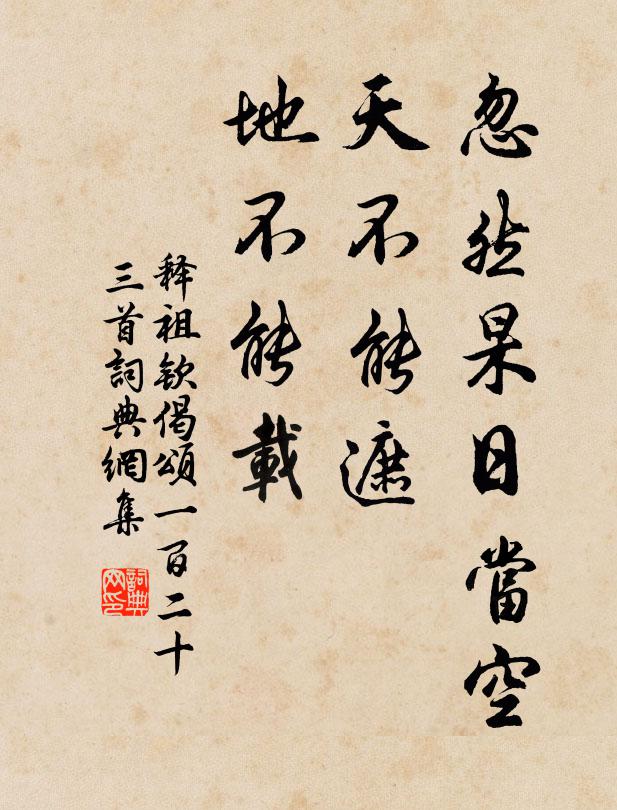 忽然杲日當空
天不能遮
地不能載
释祖钦偈頌一百二十
三首詞典網集
詞典
网印